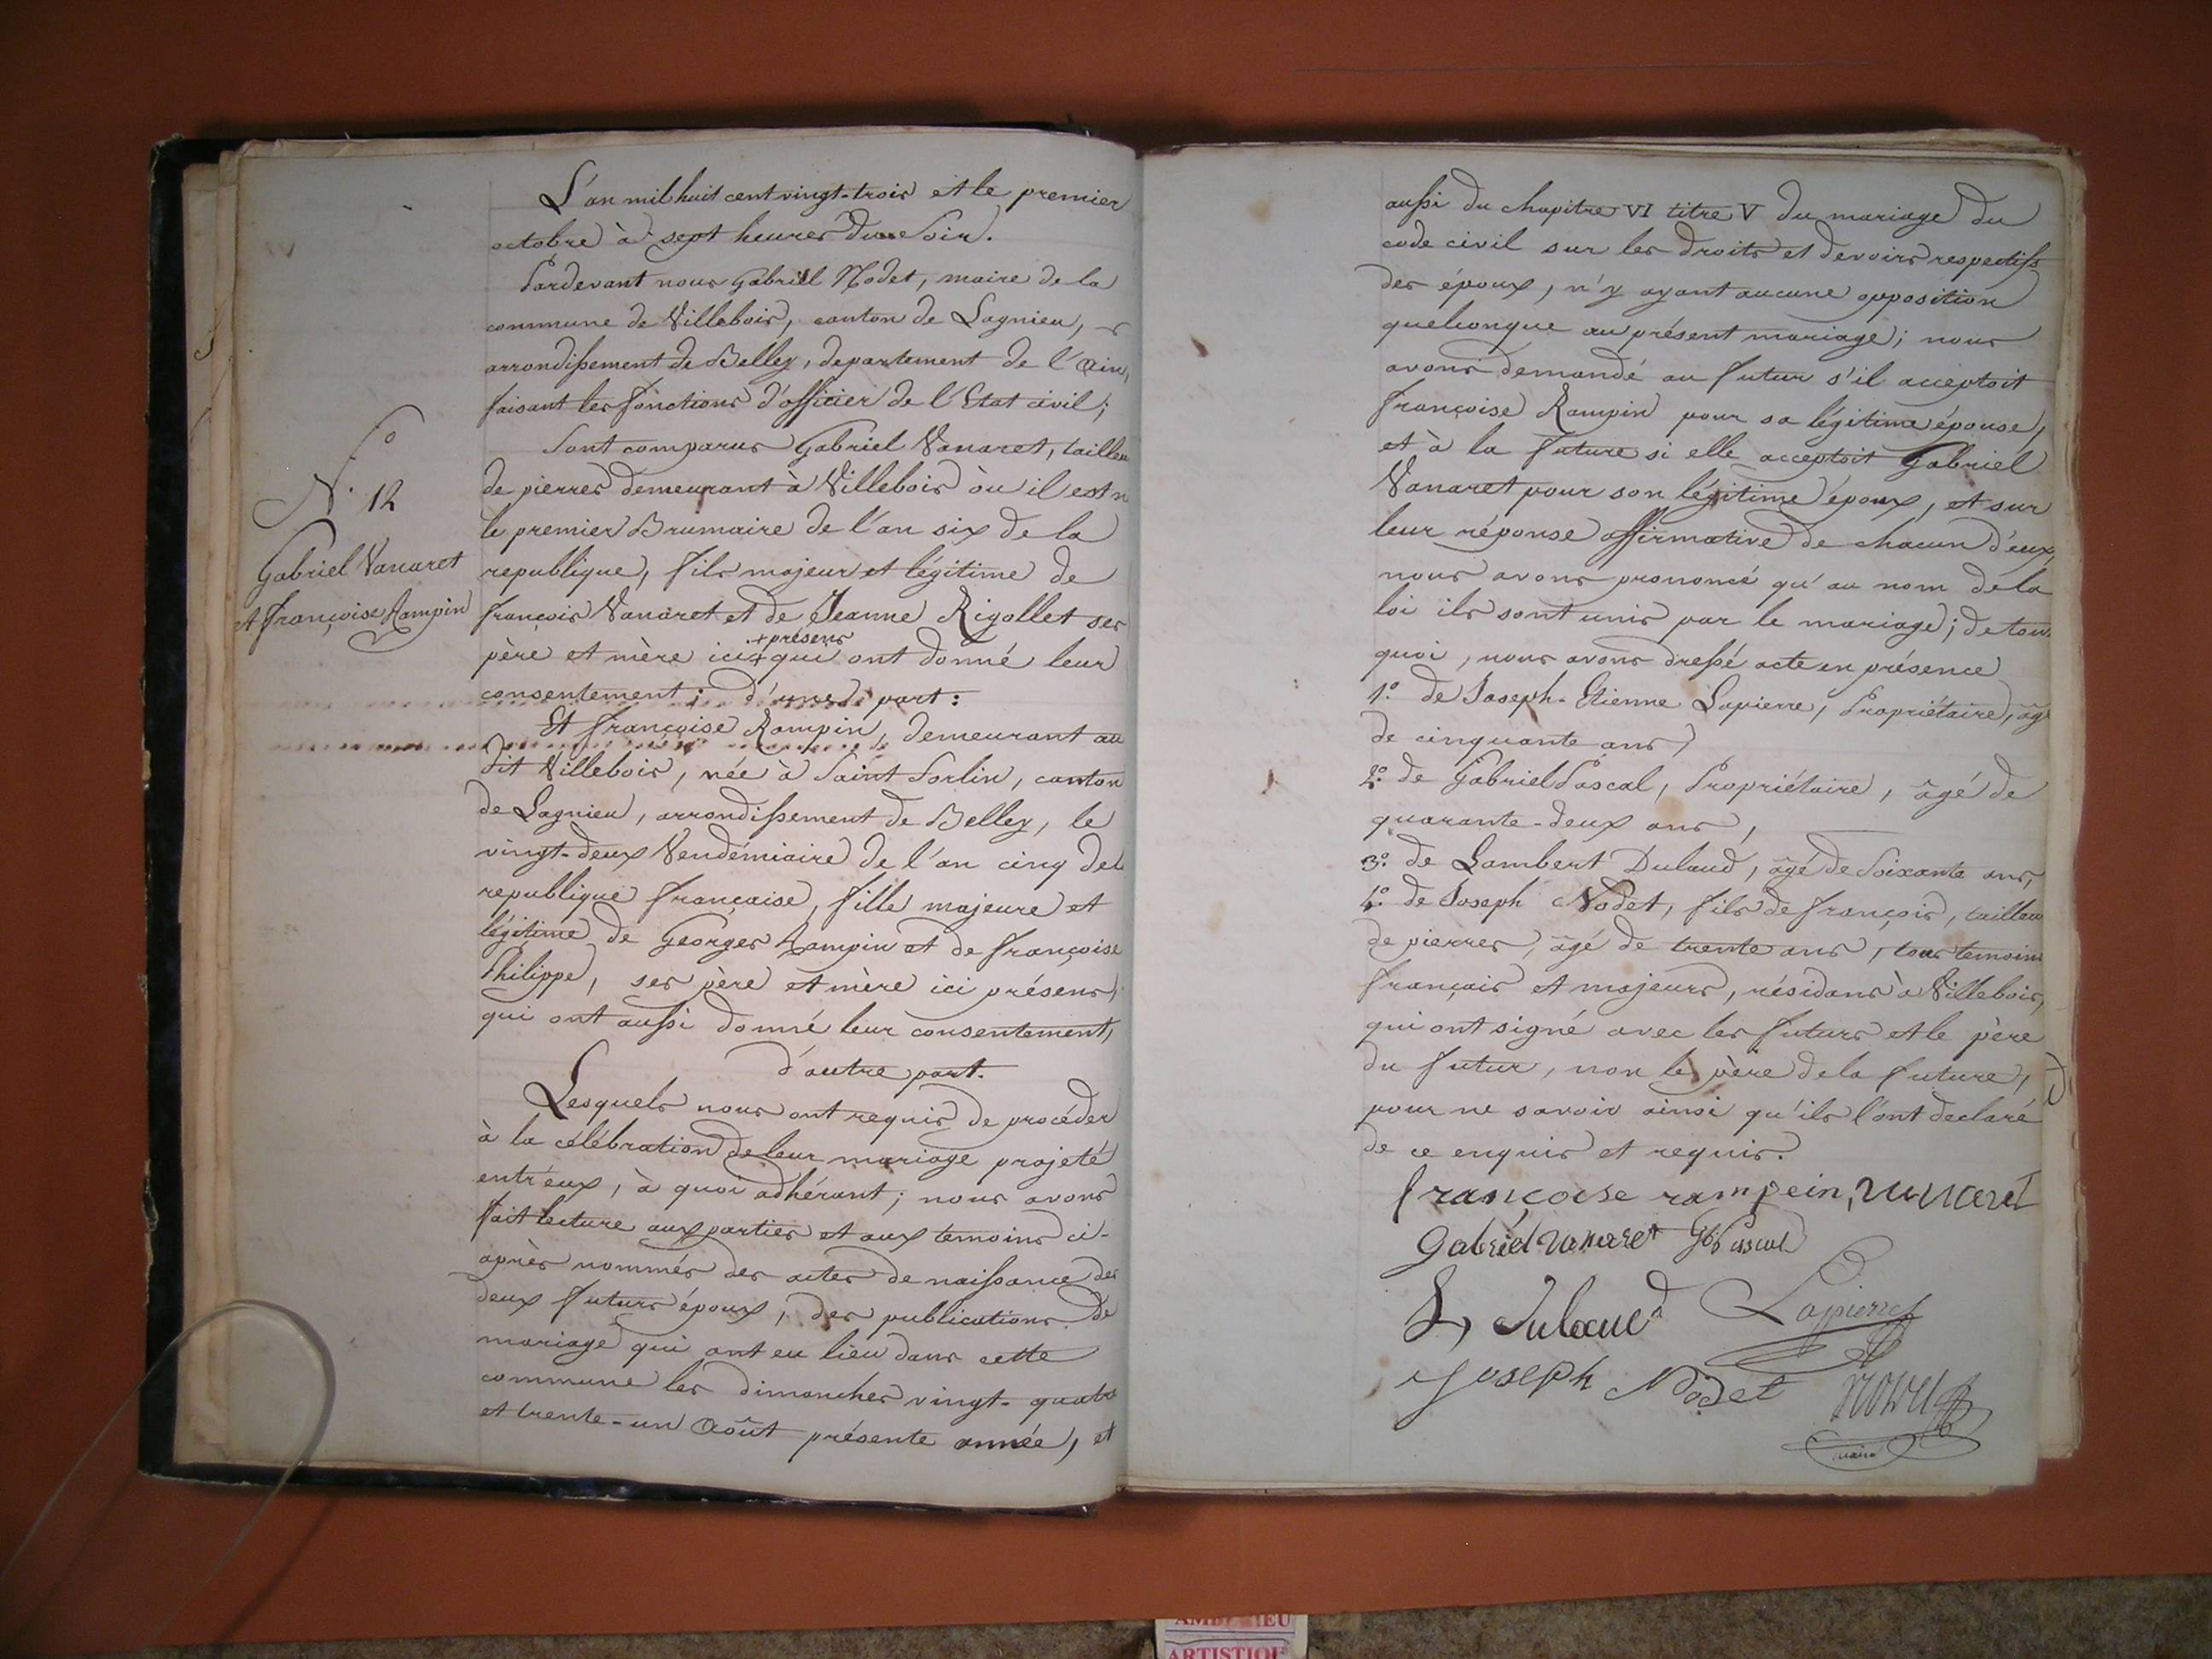 L'an mil huit cent vingt-trois et le premier
octobre à sept heures du soir.
Pardevant nous Gabriel Nodet, maire de la
commune de Villebois, canton de Lagnieu,
arrondissement de Belley, departement de l'Ain,
faisant les fonctions d'officier de l'Etat civil;
Sont comparus Gabriel Vanaret, tailleu
de pierres demeurant à Villebois où il est n
le premier Brumaire de l'an six de la
republique, fils majeur et légitime de
françois Vanaret et de Jeanne Rigollet ses
+ présens
père et mère ici + qui ont donné leur
consentement; d'une part:
Et françoise Rampin, demeurant au
dit Villebois, née à Saint Sorlin, canton
de Lagnieu, arrondissement de Belley, le
vingt-deux Vendémiaire de l'an cinq de l
republique française, fille majeure et
légitime de Georges Rampin et de françoise
Philippe, ses père et mère ici présens,
qui ont aussi donné leur consentement,
d'autre part.
Lesquels nous ont requis de procéder
à la célébration de leur mariage projeté
entr'eux, à quoi adhérant; nous avons
fait lecture aux parties et aux temoins ci-
après nommés des actes de naissance des
deux futurs époux, des publications de
mariage qui ont eu lieu dans cette
commune les dimanches vingt-quatre
et trente-un Août présente année, et
N.° 12
Gabriel Vanaret
et françoise Rampin
aussi du chapitre VI titre V du mariage du
code civil sur les droits et devoirs respectifs
des époux, n'y ayant aucune opposition
quelconque au présent mariage; nous
avons demandé au futur s'il acceptoit
françoise Rampin pour sa légitime épouse,
et à la future si elle acceptoit Gabriel
Vanaret pour son légitime époux, et sur
leur réponse affirmative de chacun d'eux,
nous avons prononcé qu'au nom de la
loi ils sont unis par le mariage; de tou
quoi, nous avons dressé acte en présence
1.° de Joseph-Etienne Lapierre, Propriétaire, âgé
de cinquante ans,
2.° de Gabriel Pascal, Propriétaire, âgé de
quarante-deux ans,
3.° de Lambert Dulaud, âgé de soixante ans,
4.° de Joseph Nodet, fils de françois, tailleu
de pierres, âgé de trente ans, tous temoins
français et majeurs, résidans à Villebois,
qui ont signé avec les futurs et le père
du futur, non le père de la future,
pour ne savoir ainsi qu'ils l'ont declaré
de ce enquis et requis.
françoise rampein, vanaret
Gabriel vanaret Gb Pascal
L, Dulaud Lapierre
Joseph Nodet Nodet
maire
ARTISTIQ